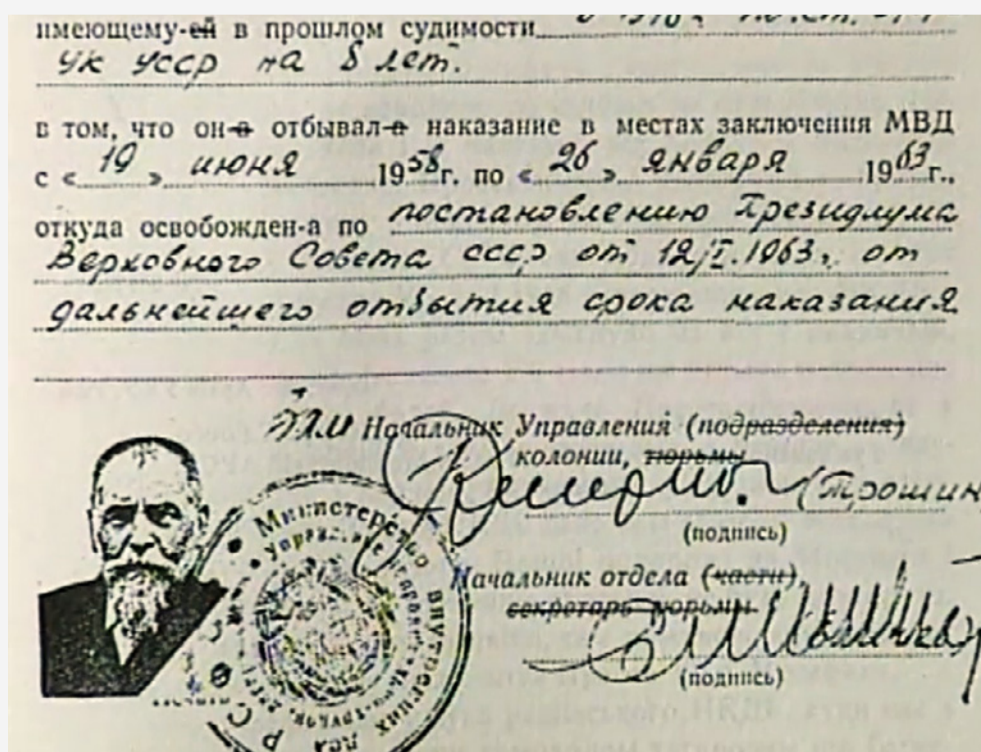 имеющему-ей в прошлом судимости
УК УССР на 8 лет.
в том, что он-а отбывал-а наказание в местах заключения МВД
с «19» июня 1958г. по «26» января 1963г.,
откуда освобожден-а по постановлению Президиума
Верховного Совета СССР от 12/I.1963г. от
дальнейшего отбытия срока наказания
Начальник Управления (подразделения)
колонии, тюрьмы
(Трошин
(подпись)
Начальник отдела (части),
секретарь тюрьмы
(подпись)
Министерство внутренних дел
управление